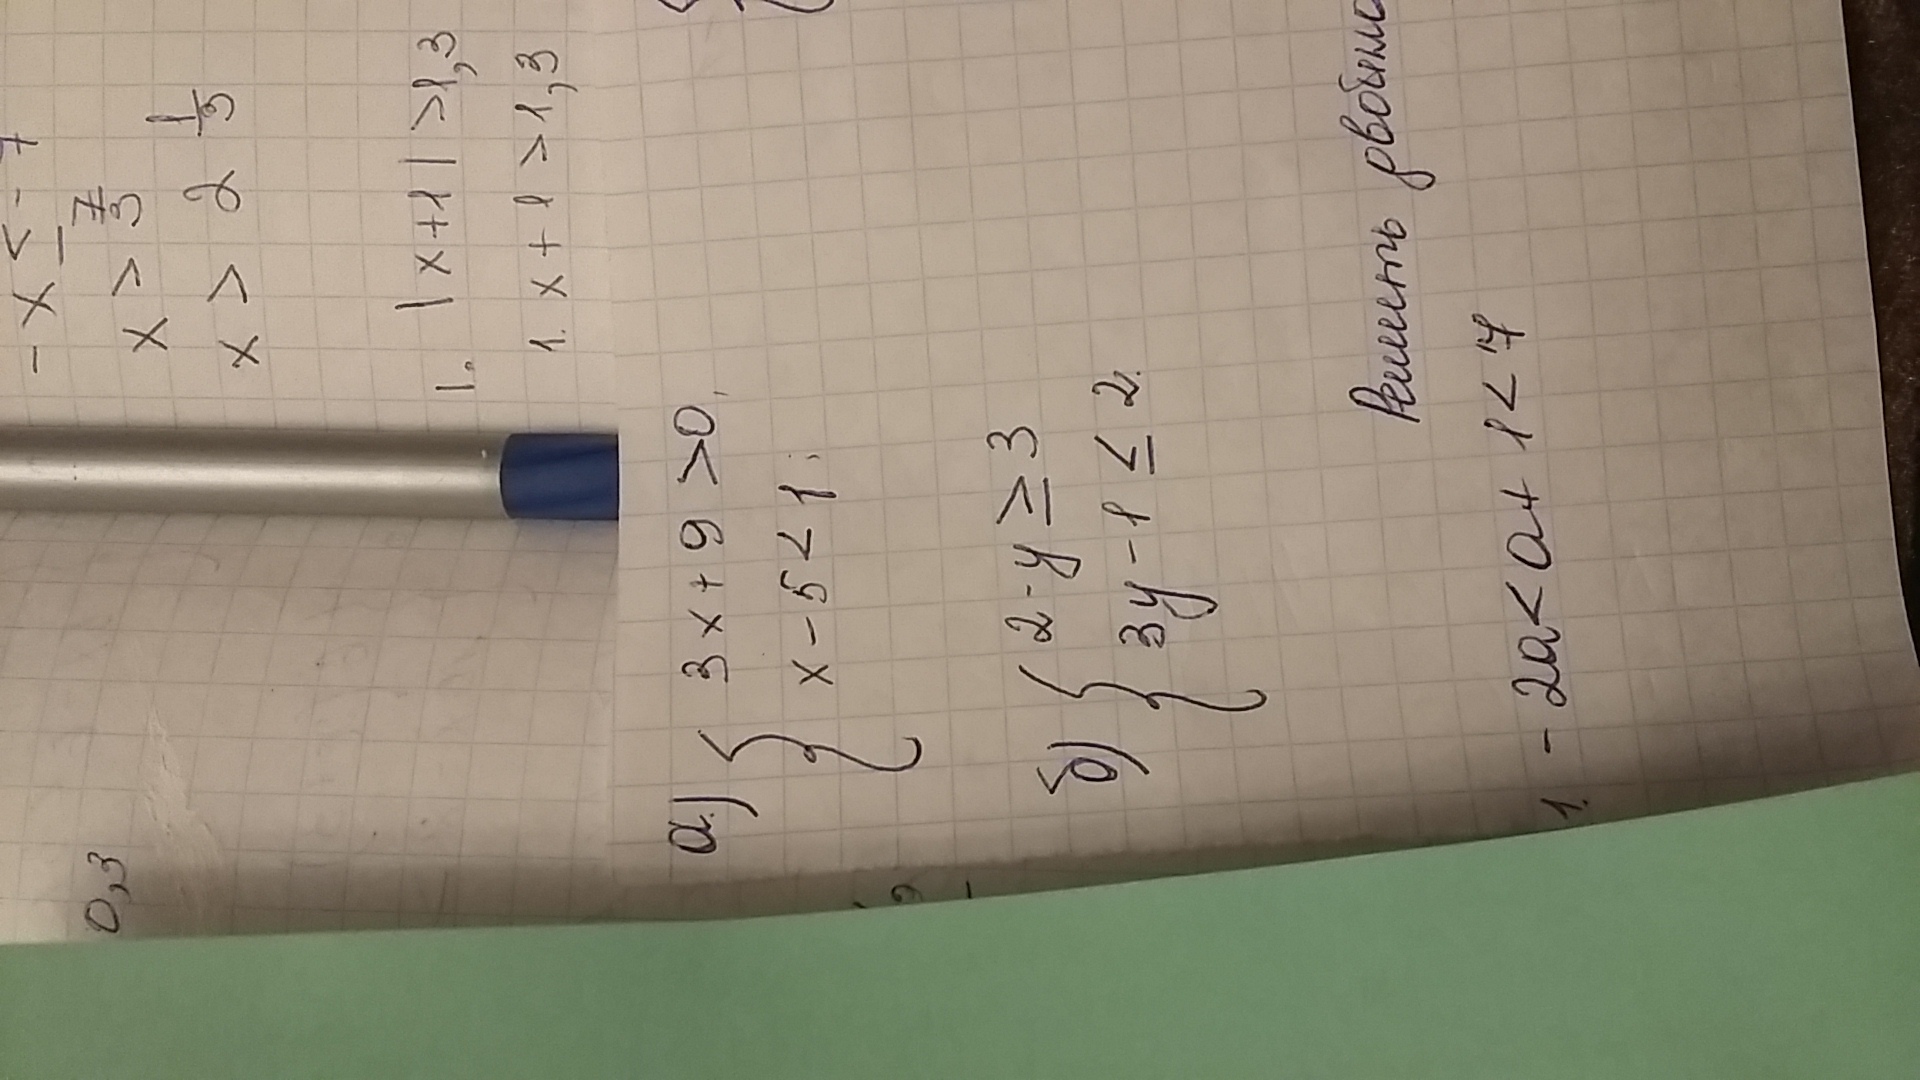 -x < -7
x > 7/3
x > 2 1/3
1. |x+1| > 1,3
1. x+1 > 1,3
0,3
а.) { 3x+9 > 0,
x-5 < 1;
б) { 2-y ≥ 3
3y-1 ≤ 2.
Решить
1. -2a < a+1 < 17